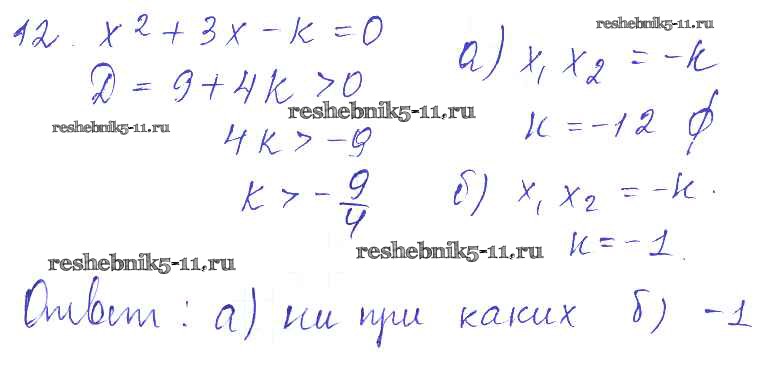 12. x² + 3x - k = 0
reshebnik5-11.ru
D = 9 + 4k > 0
а) x₁ x₂ = -k
reshebnik5-11.ru
reshebnik5-11.ru
4k > -9
k = -12 ∅
k > -9/4
б) x₁ x₂ = -k.
k = -1.
reshebnik5-11.ru
reshebnik5-11.ru
Ответ: а) ни при каких б) -1